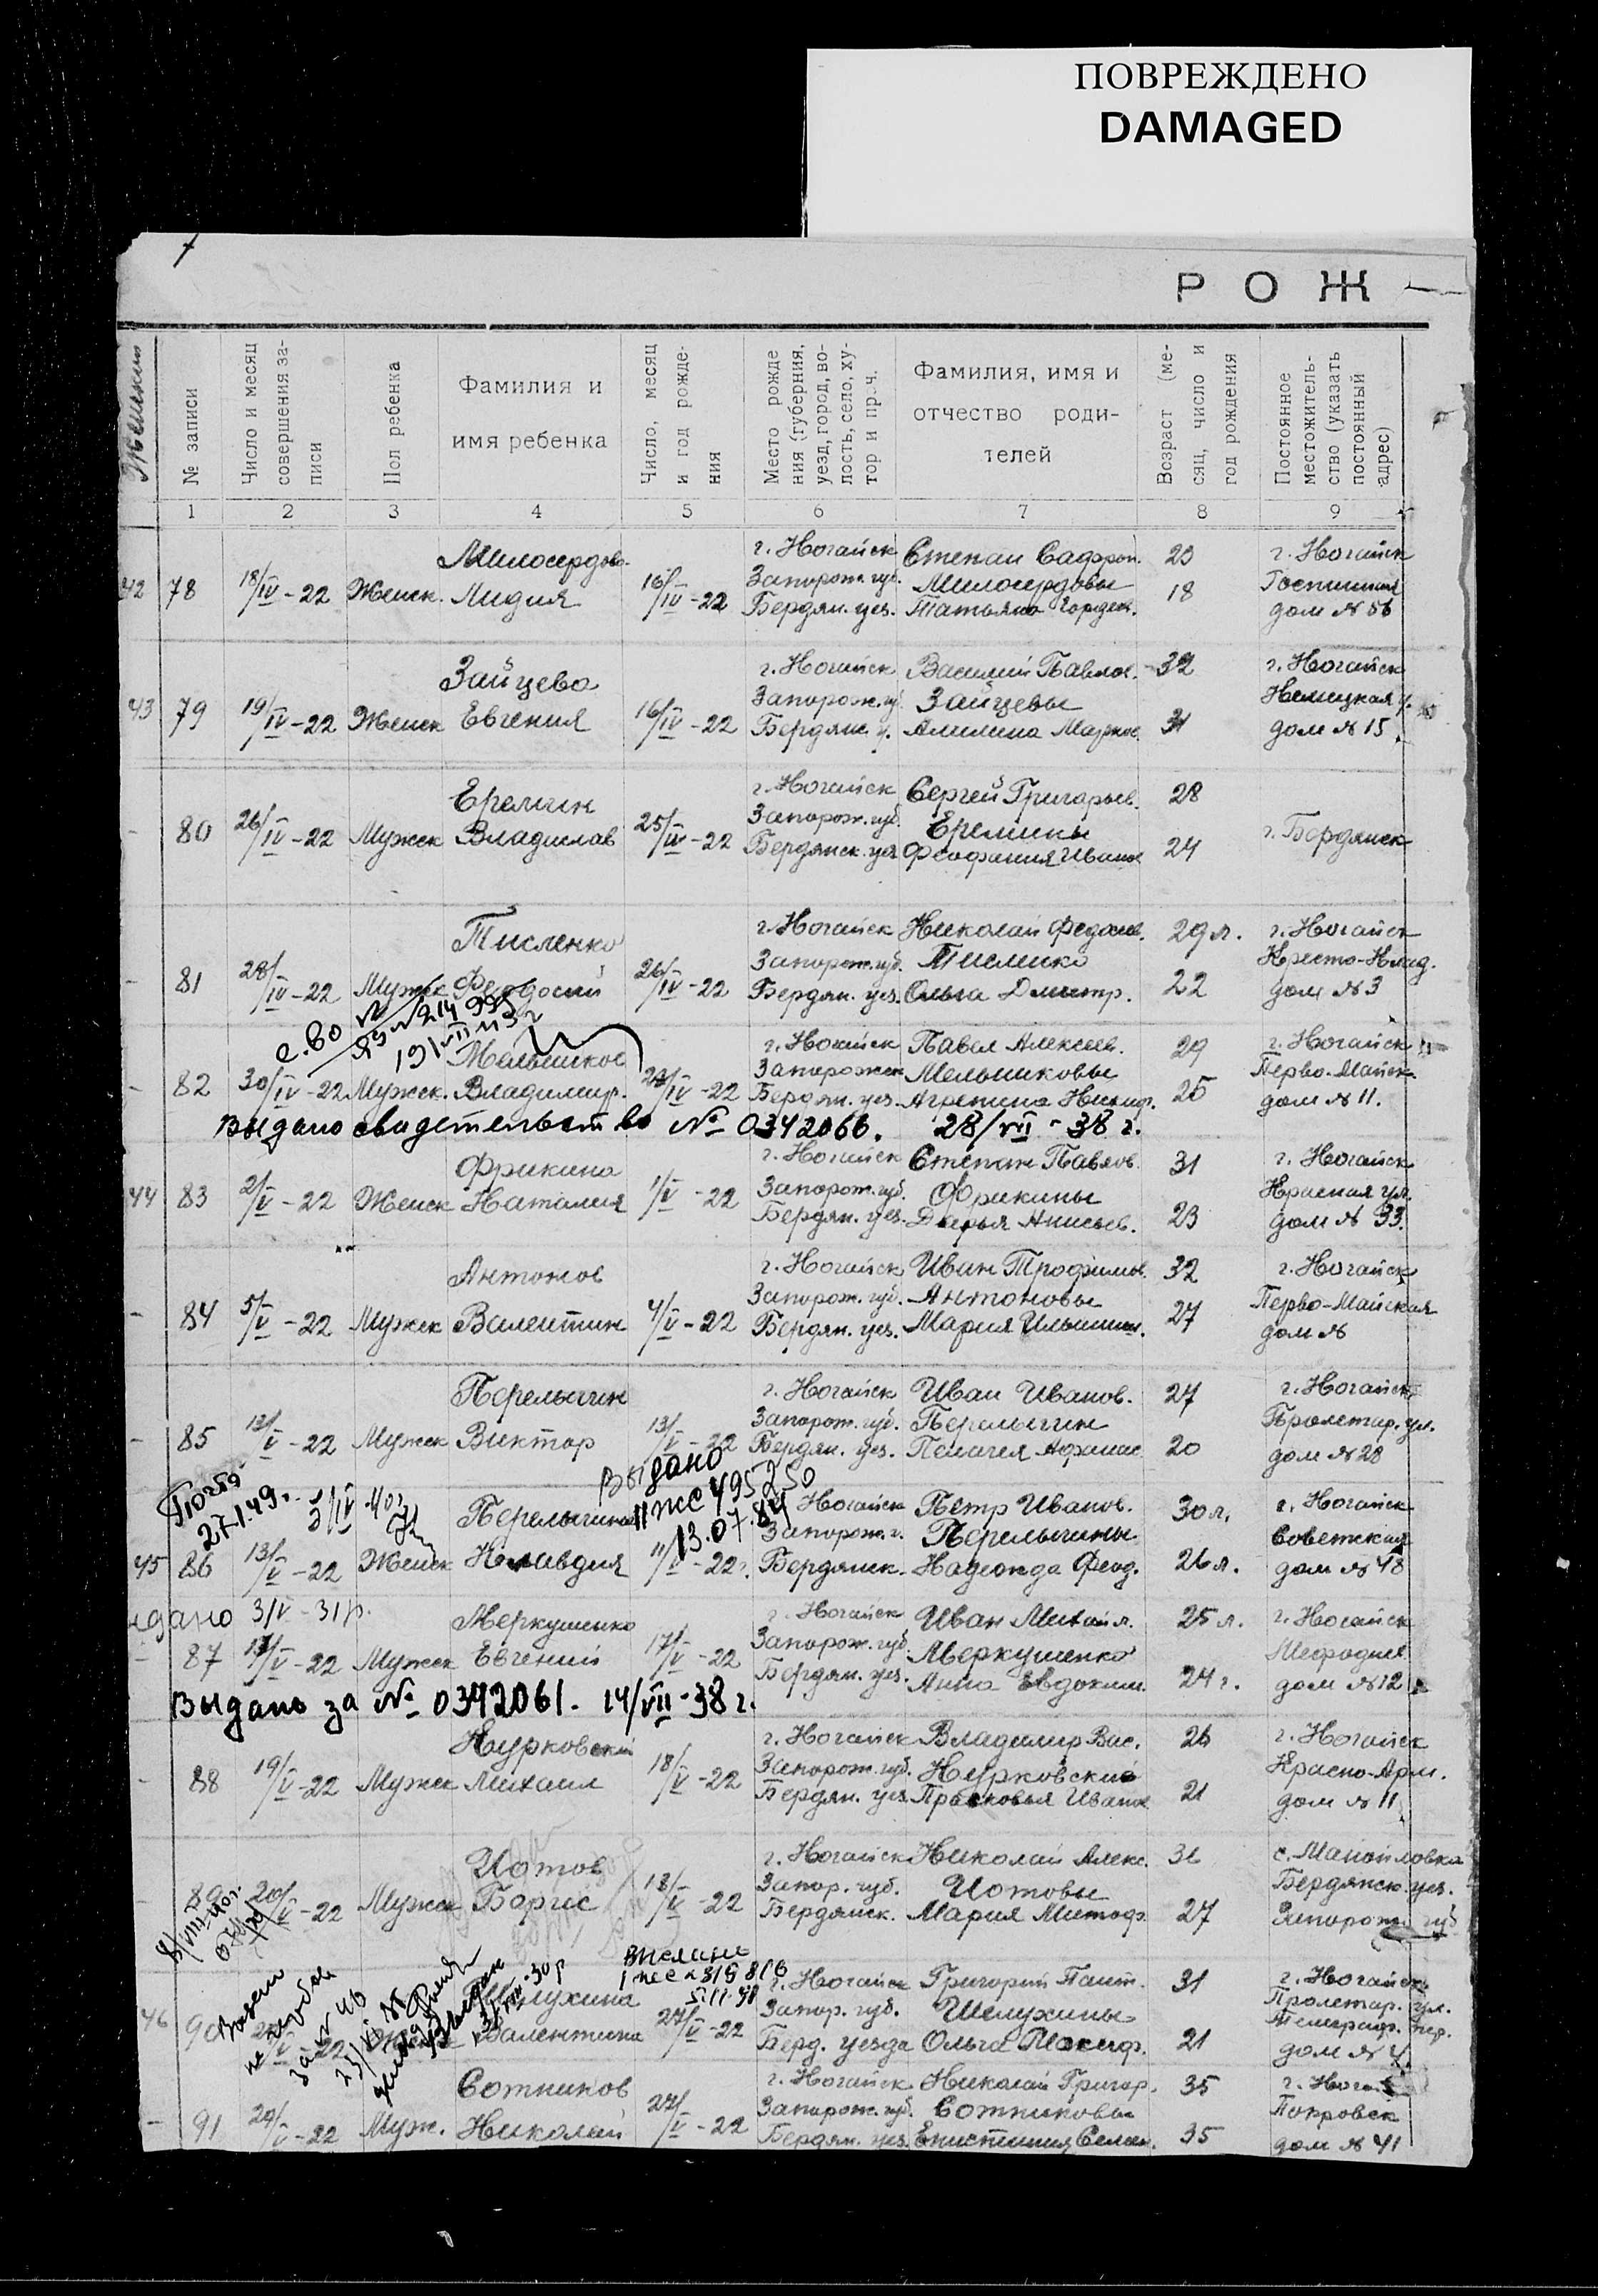 ПОВРЕЖДЕНО
DAMAGED
Р О Ж
Женский
№ записи
Число и месяц совершения записи
Пол ребенка
Фамилия и
имя ребенка
Число, месяц и год рождения
Место рождения (губерния, уезд, город, волость, село, хутор и пр.ч.
Фамилия, имя и
отчество роди-
телей
Возраст (месяц, число и год рождения
Постоянное местожительство (указать постоянный адрес)
1 2 3 4 5 6 7 8 9
Милосердова г. Ногайск Степан Сафрон. 23 г. Ногайск
42 78 18/IV-22 Женск. Лидия 16/IV-22 Запорож. губ. Милосердовы 18
Бердян. уез. Татьяна Гордеев. дом № 56
Зайцева г. Ногайск Василий Павлов. 32 г. Ногайск
43 79 19/IV-22 Женск Евгения 16/IV-22 Запорож. г. Зайцевы 31 Немецкая у.
Бердянс. у. дом № 15
Еремин г. Ногайск Сергей Григорьев. 28
80 26/IV-22 Мужск Владислав 25/IV-22 Запорож. губ. Еремины г. Бердянск
Бердянск. уез Феофания Иванов 24
Тисленко г. Ногайск Николай Федосев. 29 л. г. Ногайск
81 28/IV-22 Мужск Феодосий 26/IV-22 Запорож. губ. Тисленко
Бердян. уез. Ольга Дмитр. 22 дом № 3
19/VII
Мельников г. Ногайск Павел Алексеев. 29 г. Ногайск
82 30/IV-22 Мужск. Владимир. Запорожск Мельниковы Перво-Майск.
Бердян. уез. Агрепина Никиф. 25 дом № 11.
Выдано свидетельство № 0342066. 28/VII-38 г.
Фрикина г. Ногайск Степан Павлов. 31 г. Ногайск
44 83 2/V-22 Женск Наталия 1/V-22 Запорож. губ. Фрикины Красная ул.
Бердян. уез. Дарья Анисьев. 23 дом № 33.
Антонов г. Ногайск Иван Трофимов. 32 г. Ногайск
84 5/V-22 Мужск Валентин 4/V-22 Запорож. губ. Антоновы 27 Перво-Майская
Бердян. уез. Мария дом №
Перелыгин г. Ногайск Иван Иванов. 27 г. Ногайск
85 13/V-22 Мужск Виктор 13/V-22 Запорож. губ. Перелыгин Пролетар. ул.
Бердян. уез. Пелагея Афанас 20 дом № 28
27-1.49г.
Выдано
II ЖС 495250
13.07.84
Перелыгина Ногайск Петр Иванов. 30 л. г. Ногайск
45 86 13/V-22 Женск Клавдия 11/V-22 г. Запорож. г. Перелыгины Советская
Бердянск. Надежда Феод. 26 л. дом № 48
3/V-31 р.
Меркушенко г. Ногайск Иван Михайл. 25 л. г. Ногайск
87 17/V-22 Мужск Евгений 17/V-22 Запорож. губ. Меркушенко Мефодиев
Бердян. уез. Анна Евдоким. 24 г. дом № 12
Выдано за № 0342061. 14/VII-38 г.
Курковский г. Ногайск Владимир Вас. 26 г. Ногайск
88 19/V-22 Мужск Михаил 18/V-22 Запорож. губ. Курковский Красно-Арм.
Бердян. уез. Прасковья Иванов 21 дом № 11
Иотов г. Ногайск Николай Алекс. 31 с. Манойловка
89 20/V-22 Мужск Борис 18/V-22 Запор. губ. Иотовы Бердянск. уез.
Бердянск. Мария Митроф. 27 Запорож. губ
Шелухина г. Ногайск Григорий Пант. 31 г. Ногайск
46 90 Валентина 27/V-22 Запор. губ. Шелухины Пролетар. ул.
Берд. уезда Ольга 21 Телеграф. пер.
дом № 4
Сотников г. Ногайск Николай Григор. 35
91 29/V-22 Муж. Николай 27/V-22 Запорож. губ. Сотниковы Покровск
Бердян. уез. 35 дом № 41